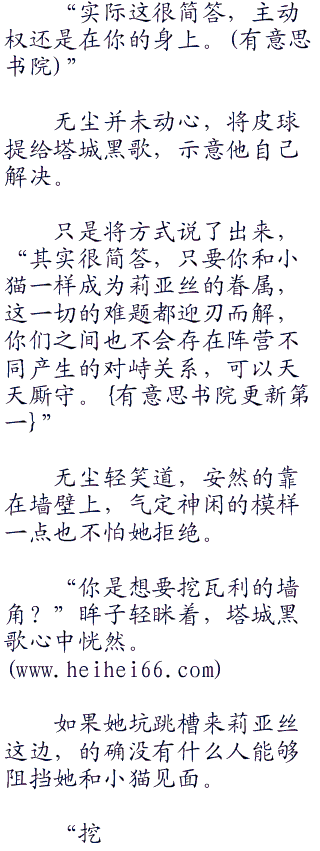 “实际这很简答，主动
权还是在你的身上。(有意思
书院)”
无尘并未动心，将皮球
提给塔城黑歌，示意他自己
解决。
只是将方式说了出来，
“其实很简答，只要你和小
猫一样成为莉亚丝的眷属，
这一切的难题都迎刃而解，
你们之间也不会存在阵营不
同产生的对峙关系，可以天
天厮守。{有意思书院更新第
一}”
无尘轻笑道，安然的靠
在墙壁上，气定神闲的模样
一点也不怕她拒绝。
“你是想要挖瓦利的墙
角？”眸子轻眯着，塔城黑
歌心中恍然。
(www.heihei66.com)
如果她坑跳槽来莉亚丝
这边，的确没有什么人能够
阻挡她和小猫见面。
“挖